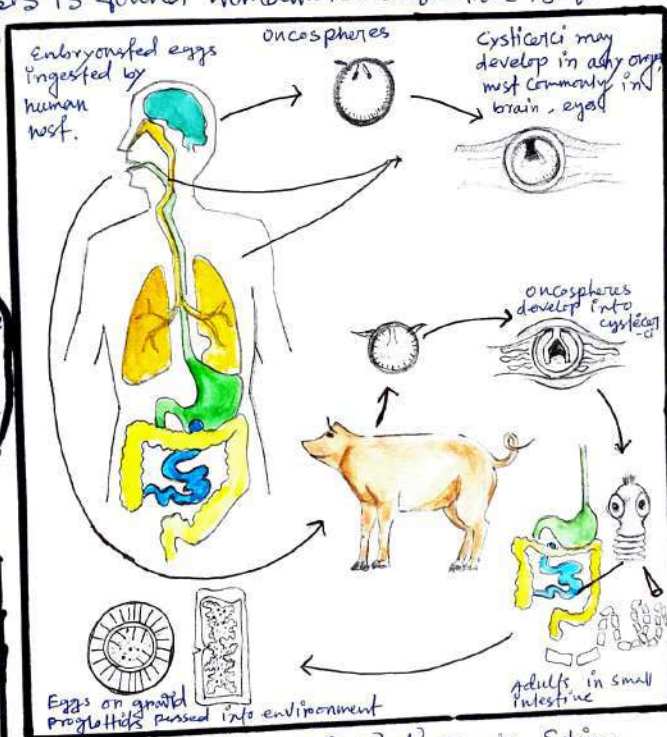 Embryonated eggs
ingested by
human
host.
oncospheres
Cysticerci may
develop in any organ
most commonly in
brain, eyes
oncospheres
develop into
cysticer
-ci
Adults in small
intestine
Eggs or gravid
proglottids passed into environment